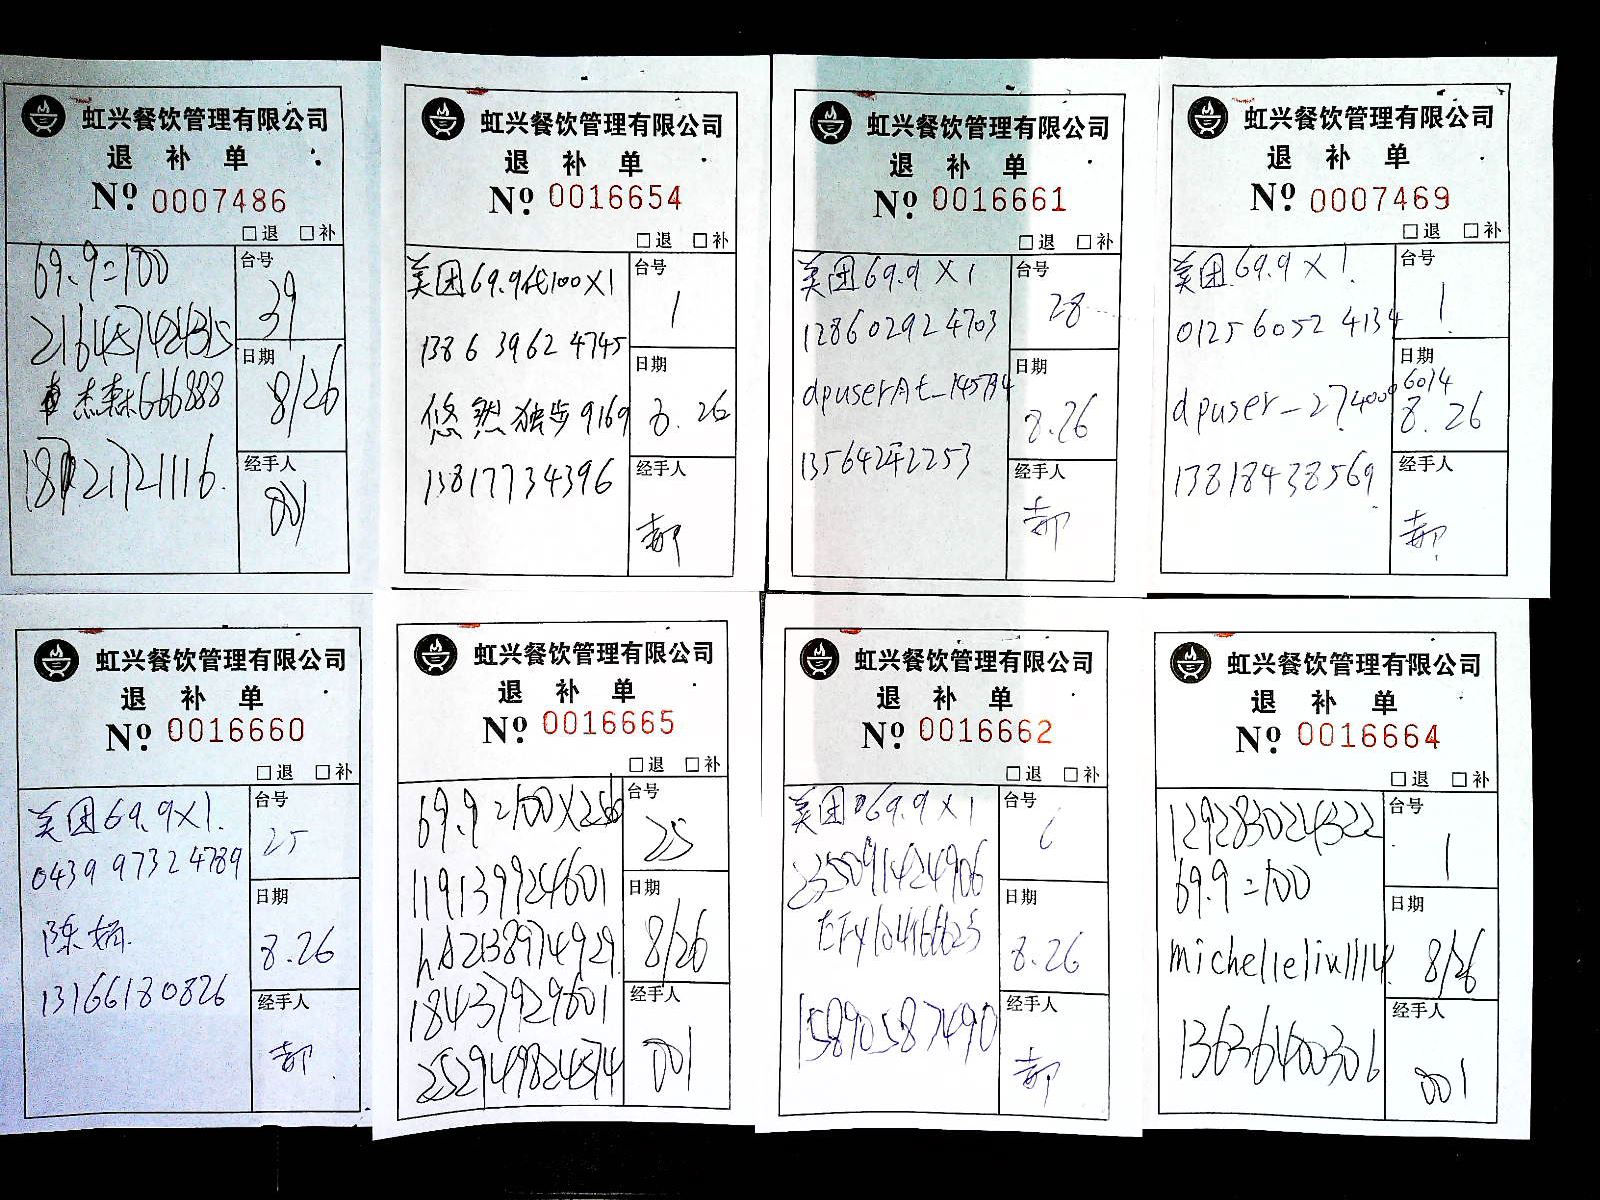 虹兴餐饮管理有限公司
退 补 单
Nº 0007486
□退 □补
69.9=100
216457424315
杰森666888
18721721116
台号
39
日期
8/26
经手人
001
虹兴餐饮管理有限公司
退 补 单
Nº 0016654
□退 □补
美团69.9代100X1
1386 3962 4745
悠然独步9169
13817734396
台号
1
日期
8.26
经手人
郝
虹兴餐饮管理有限公司
退 补 单
Nº 0016661
□退 □补
美团69.9X1
1286 0292 4703
13564242253
台号
28
日期
8.26
经手人
郝
虹兴餐饮管理有限公司
退 补 单
Nº 0007469
□退 □补
美团69.9X1.
0125 6052 4134
dpuser_27400
6014
13818438569
台号
1
日期
8.26
经手人
郝
虹兴餐饮管理有限公司
退 补 单
Nº 0016660
□退 □补
美团69.9X1.
0439 9732 4789
陈娟.
13166180826
台号
25
日期
8.26
经手人
郝
虹兴餐饮管理有限公司
退 补 单
Nº 0016665
□退 □补
69.9=100X2
119139924601
18437929601
252949824574
台号
25
日期
8/26
经手人
001
虹兴餐饮管理有限公司
退 补 单
Nº 0016662
□退 □补
美团69.9X1
235091424906
15890587490
台号
6
日期
8.26
经手人
郝
虹兴餐饮管理有限公司
退 补 单
Nº 0016664
□退 □补
129283024322
69.9=100
michelleliu1114
13636400306
台号
1
日期
8/26
经手人
001